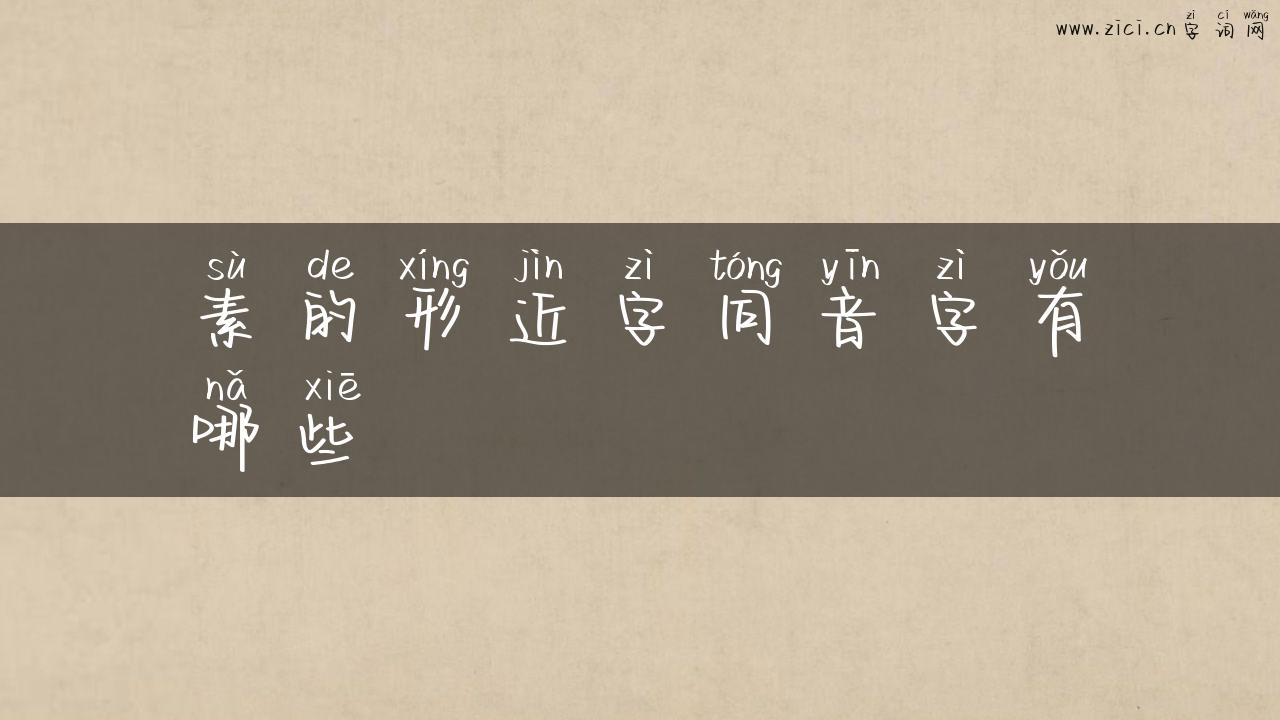 zì cí wǎng
www.zici.cn 字 词 网
sù de xíng jìn zì tóng yīn zì yǒu
素 的 形 近 字 同 音 字 有
nǎ xiē
哪 些